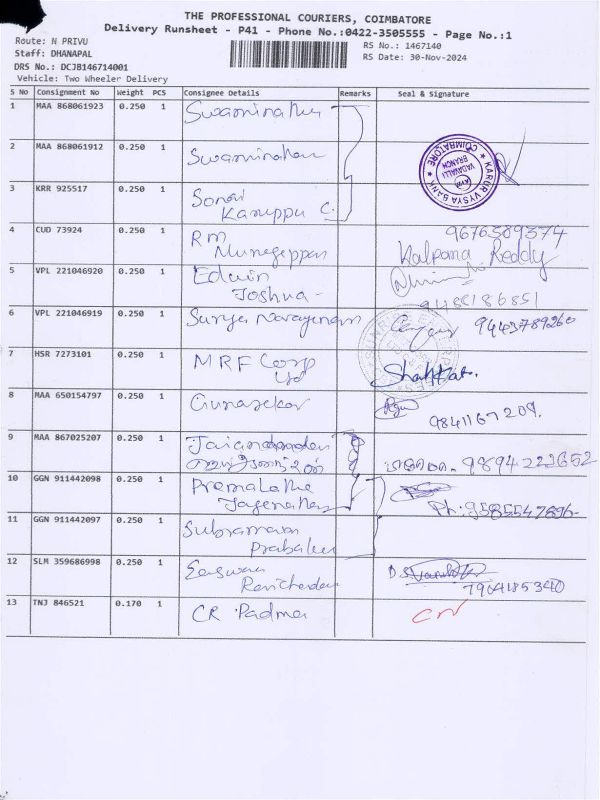 THE PROFESSIONAL COURIERS, COIMBATORE
Delivery Runsheet - P41 - Phone No.:0422-3505555 - Page No.:1
Route: N PRIVU
RS No.: 1467140
Staff: DHANAPAL
RS Date: 30-Nov-2024
DRS No.: DCJB146714001
Vehicle: Two Wheeler Delivery
S No Consignment No Weight PCS Consignee Details Remarks Seal & Signature
1 MAA 868061923 0.250 1 Swaminathan
2 MAA 868061912 0.250 1 Swaminathan
KARUR VYSYA BANK COIMBATORE VADAVALLI BRANCH
3 KRR 925517 0.250 1 Sonai
Karuppu C.
4 CUD 73924 0.250 1 RM 9676389374
Murugappan Kalpana Reddy
5 VPL 221046920 0.250 1 Edwin
Joshua - 9488186851
6 VPL 221046919 0.250 1 Surya Narayanan 9443789260
7 HSR 7273101 0.250 1 MRF Corp
Ltd
8 MAA 650154797 0.250 1 Gunasekar 9841167209.
9 MAA 867025207 0.250 1 9894 223652
10 GGN 911442098 0.250 1 Premalatha
Jaganathan Ph: 9585547896-
11 GGN 911442097 0.250 1 Subramani
Prabakar
12 SLM 359686998 0.250 1 Easwari
Ravichandran 7904185340
13 TNJ 846521 0.170 1 CR Padma